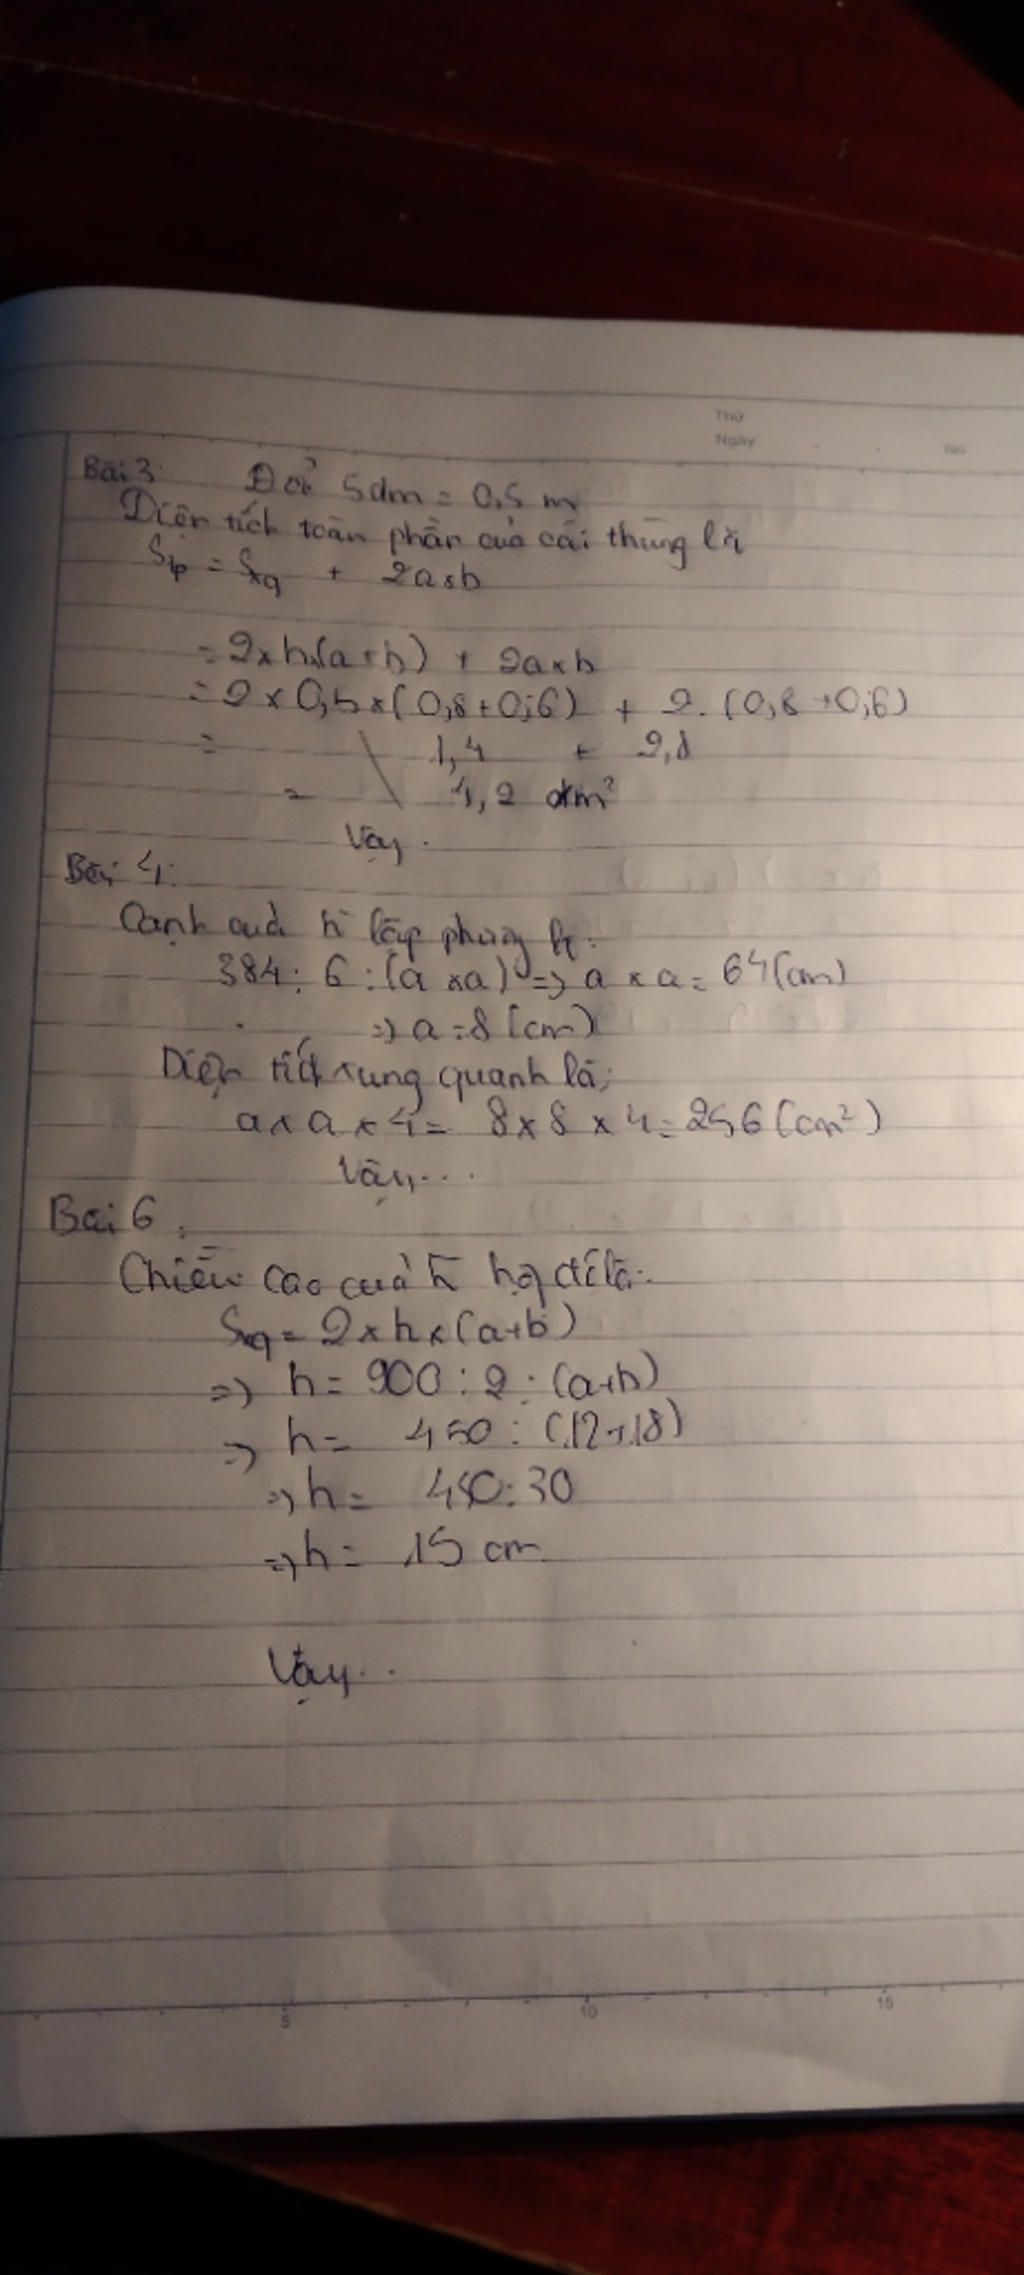 Thứ
Ngày No
Bài 3: Đổi 5dm = 0,5 m
Diện tích toàn phần của cái thùng là
Stp = Sxq + 2axb
= 2xhx(a+b) + 2axb
= 2 x 0,5 x (0,8+0,6) + 2. (0,8+0,6)
= 1,4 + 2,8
= 4,2 m²
Vậy.
Bài 4:
Cạnh của h lập phương là:
384 : 6 : (a xa) => a x a = 64 (cm)
=> a = 8 (cm)
Diện tích xung quanh là:
a x a x 4 = 8 x 8 x 4 = 256 (cm²)
Vậy...
Bài 6:
Chiều cao của h hộp đó là:
Sxq = 2 x h x (a+b)
=> h = 900 : 2 : (a+b)
=> h = 450 : (12+18)
=> h = 450 : 30
=> h = 15 cm
Vậy..
5 10 15